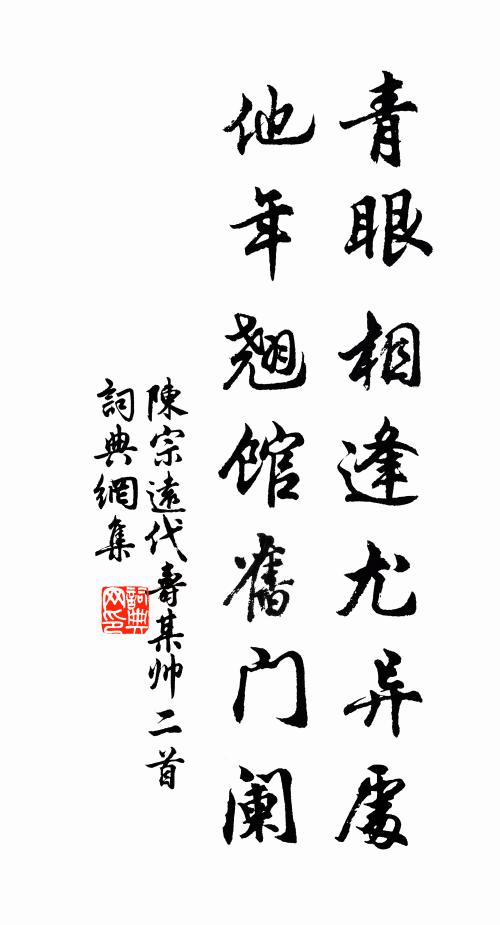 青眼相逢尤异處
他年翘馆舊门阑
陳宗遠代壽某帅二首
詞典網集
詞典网印